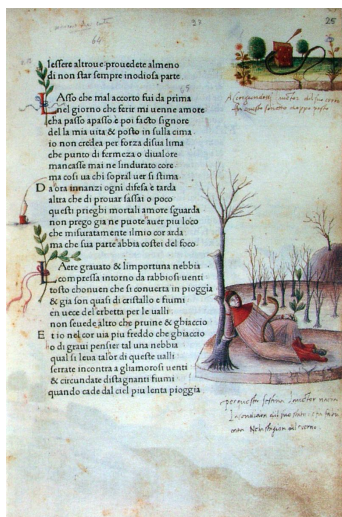 97
26
64
lessere altroue prouedete almeno
di non star sempre inodiosa parte
65
LAsso che mal accorto fui da prima
nel giorno che ferir mi uenne amore
cha passo apasso e poi facto signore
del la mia uita & posto in sulla cima
io non credea per forza disua lima
che punto di fermeza o diualore
mancasse mai ne lindurato core
ma cosi ua chi sopral uer si stima
Da ora innanzi ogni difesa e tarda
altra che di prouar sassai o poco
questi prieghi mortali amore sguarda
non prego gia ne puote auer piu loco
che misuratamente ilmio cor arda
ma che sua parte abbia costei del foco
LAere grauato & limportuna nebbia
compressa intorno da rabbiosi uenti
tosto chonuen che si conuerta in pioggia
& gia son quasi di cristallo e fiumi
en uece delerbetta per le ualli
non seuede altro che pruine & ghiaccio
Et io nel cor uia piu freddo che ghiaccio
o di graui pensier tal una nebbia
qual si leua talor di queste ualli
serrate incontra agliamorosi uenti
& circundate distagnanti fiumi
quando cade dal ciel piu lenta pioggia